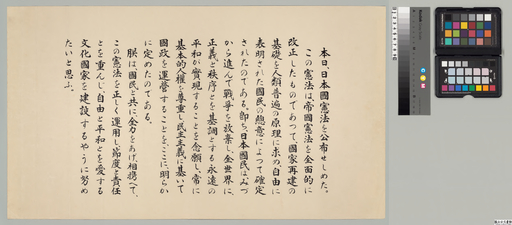 本日、日本國憲法を公布せしめた。
この憲法は、帝國憲法を全面的に
改正したものであつて、國家再建の
基礎を人類普遍の原理に求め、自由に
表明された國民の總意によつて確定
されたのである。即ち、日本國民は、みづ
から進んで戰爭を放棄し、全世界に、
正義と秩序とを基調とする永遠の
平和が實現することを念願し、常に
基本的人權を尊重し、民主主義に基いて
國政を運營することを、ここに、明らか
に定めたのである。
朕は、國民と共に、全力をあげ、相携へて、
この憲法を正しく運用し、節度と責任
とを重んじ、自由と平和とを愛する
文化國家を建設するやうに努め
たいと思ふ。